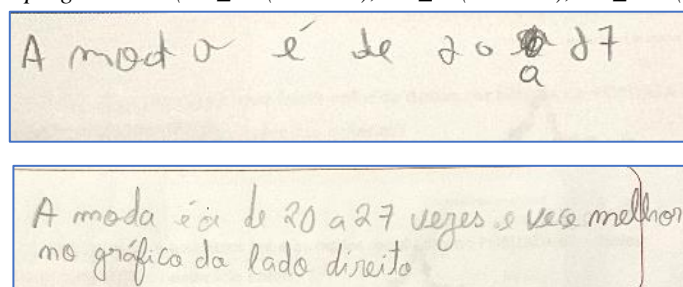 A moda é de 20 a 27
A moda é a de 20 a 27 vezes e vece melhor
no gráfico da lado direito